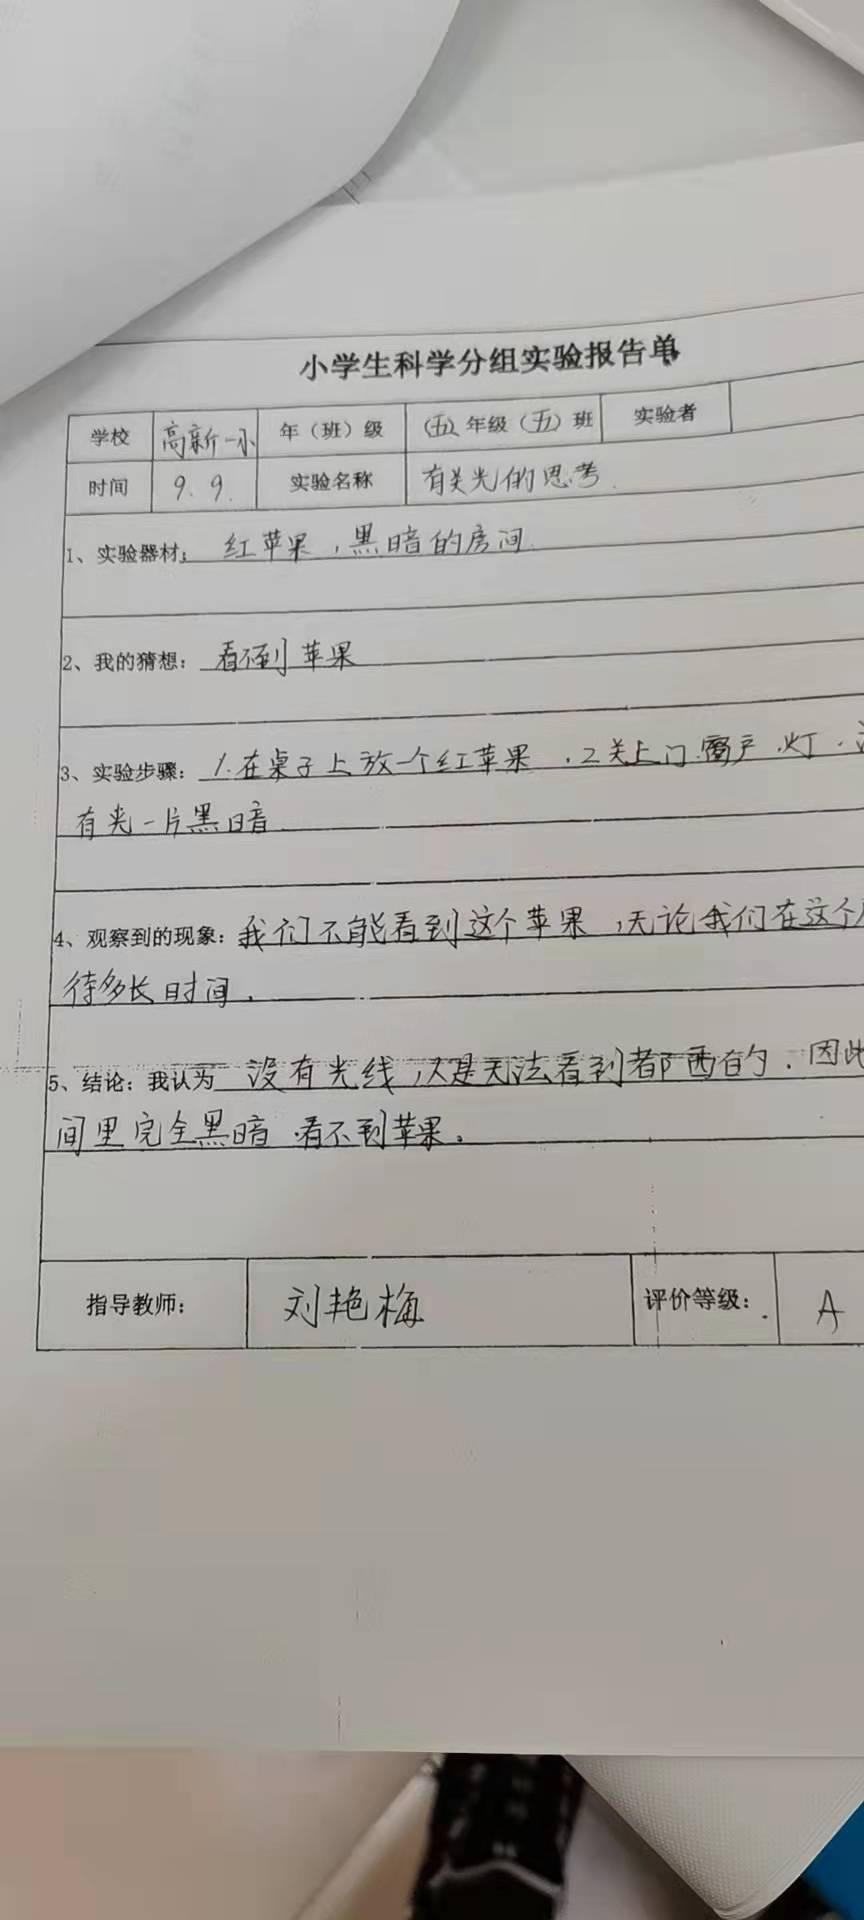 小学生科学分组实验报告单
学校 高新一小 年（班）级 （五）年级（五）班 实验者
时间 9.9. 实验名称 有关光的思考.
1、实验器材：红苹果，黑暗的房间.
2、我的猜想：看不到苹果
3、实验步骤：1.在桌子上放一个红苹果．2关上门.窗户.灯．
有光一片黑暗
4、观察到的现象：我们不能看到这个苹果，无论我们在这个
待多长时间．
5、结论：我认为 没有光线，是无法看到西的．因此
间里完全黑暗.看不到苹果。
指导教师： 刘艳梅 评价等级： A